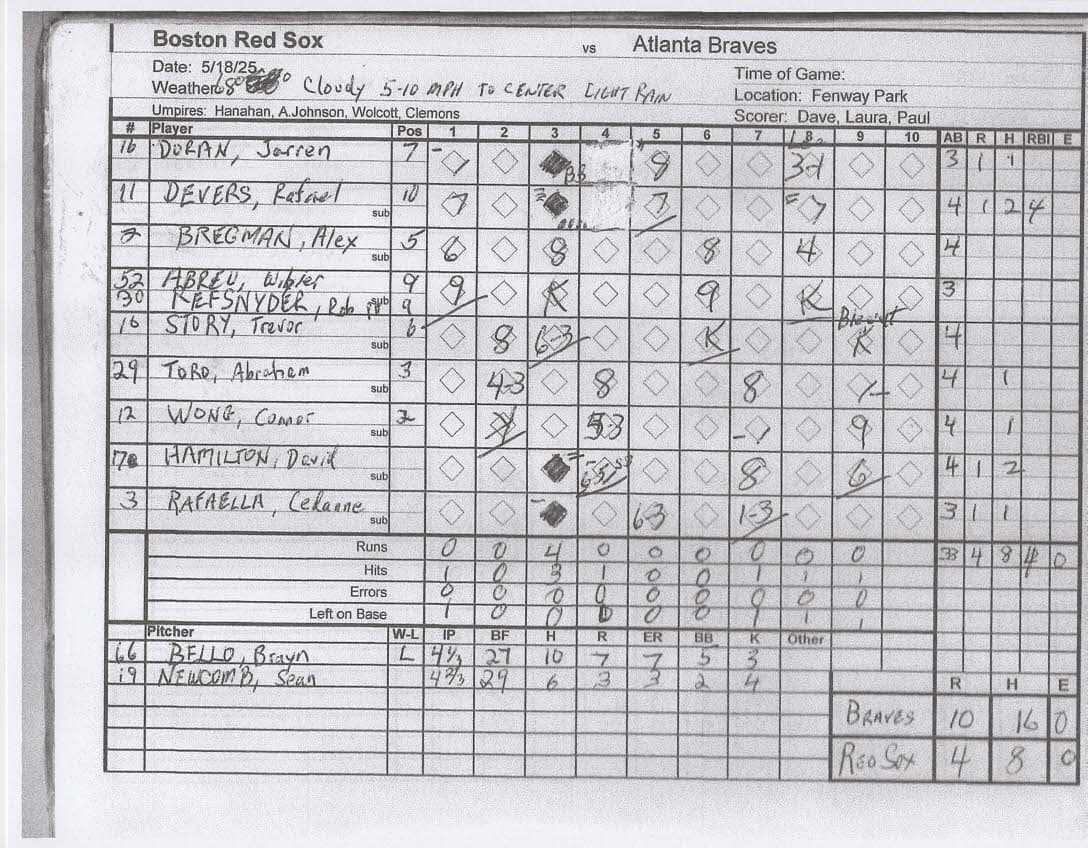 Boston Red Sox vs Atlanta Braves
Date: 5/18/25
Weather: 68° Cloudy 5-10 MPH TO CENTER LIGHT RAIN
Time of Game:
Location: Fenway Park
Umpires: Hanahan, A.Johnson, Wolcott, Clemons
Scorer: Dave, Laura, Paul
# Player Pos 1 2 3 4 5 6 7 8 9 10 AB R H RBI E
16 DURAN, Jarren 7 BB 8 3-1 3 1 1
11 DEVERS, Rafael sub 10 7 7 7 4 1 2 4
2 BREGMAN, Alex sub 5 6 8 8 4 4
52 ABREU, Wilyer 9 9 K 9 K 3
30 REFSNYDER, Rob sub 9
10 STORY, Trevor sub 6 8 6-3 K K 4
29 TORO, Abraham sub 3 4-3 8 8 4 1
12 WONG, Connor sub 2 5-3 9 4 1
17 HAMILTON, David sub 8 6 4 1 2
3 RAFAELLA, Cedanne sub 6-3 1-3 3 1 1
Runs 0 0 4 0 0 0 0 0 0 33 4 8 4 0
Hits 1 0 3 1 0 0 1 1 1
Errors 0 0 0 0 0 0 0 0 0
Left on Base 1 0 0 0 0 1 1 1
Pitcher W-L IP BF H R ER BB K Other
66 BELLO, Brayn L 4 1/3 27 10 7 7 5 3
19 NEWCOMB, Sean 4 2/3 29 6 3 3 2 4
R H E
BRAVES 10 16 0
RED SOX 4 8 0